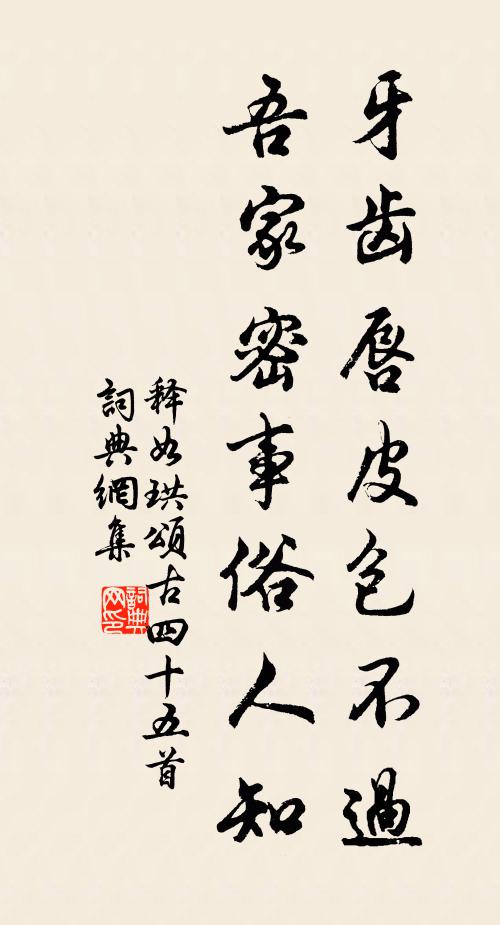 牙齿唇皮包不過
吾家密事俗人知
释如珙頌古四十五首
詞典網集
詞典
网印